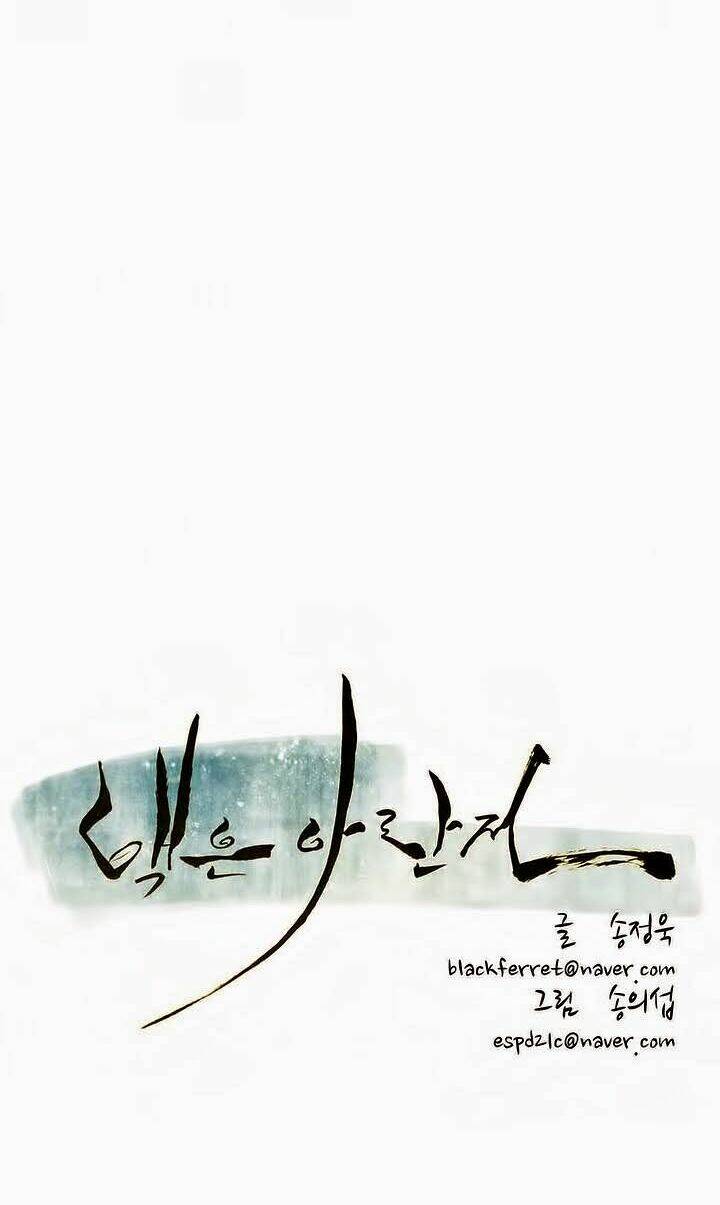 백은 아란전
글 송정욱
blackferret@naver.com
그림 송의섭
espd21c@naver.com